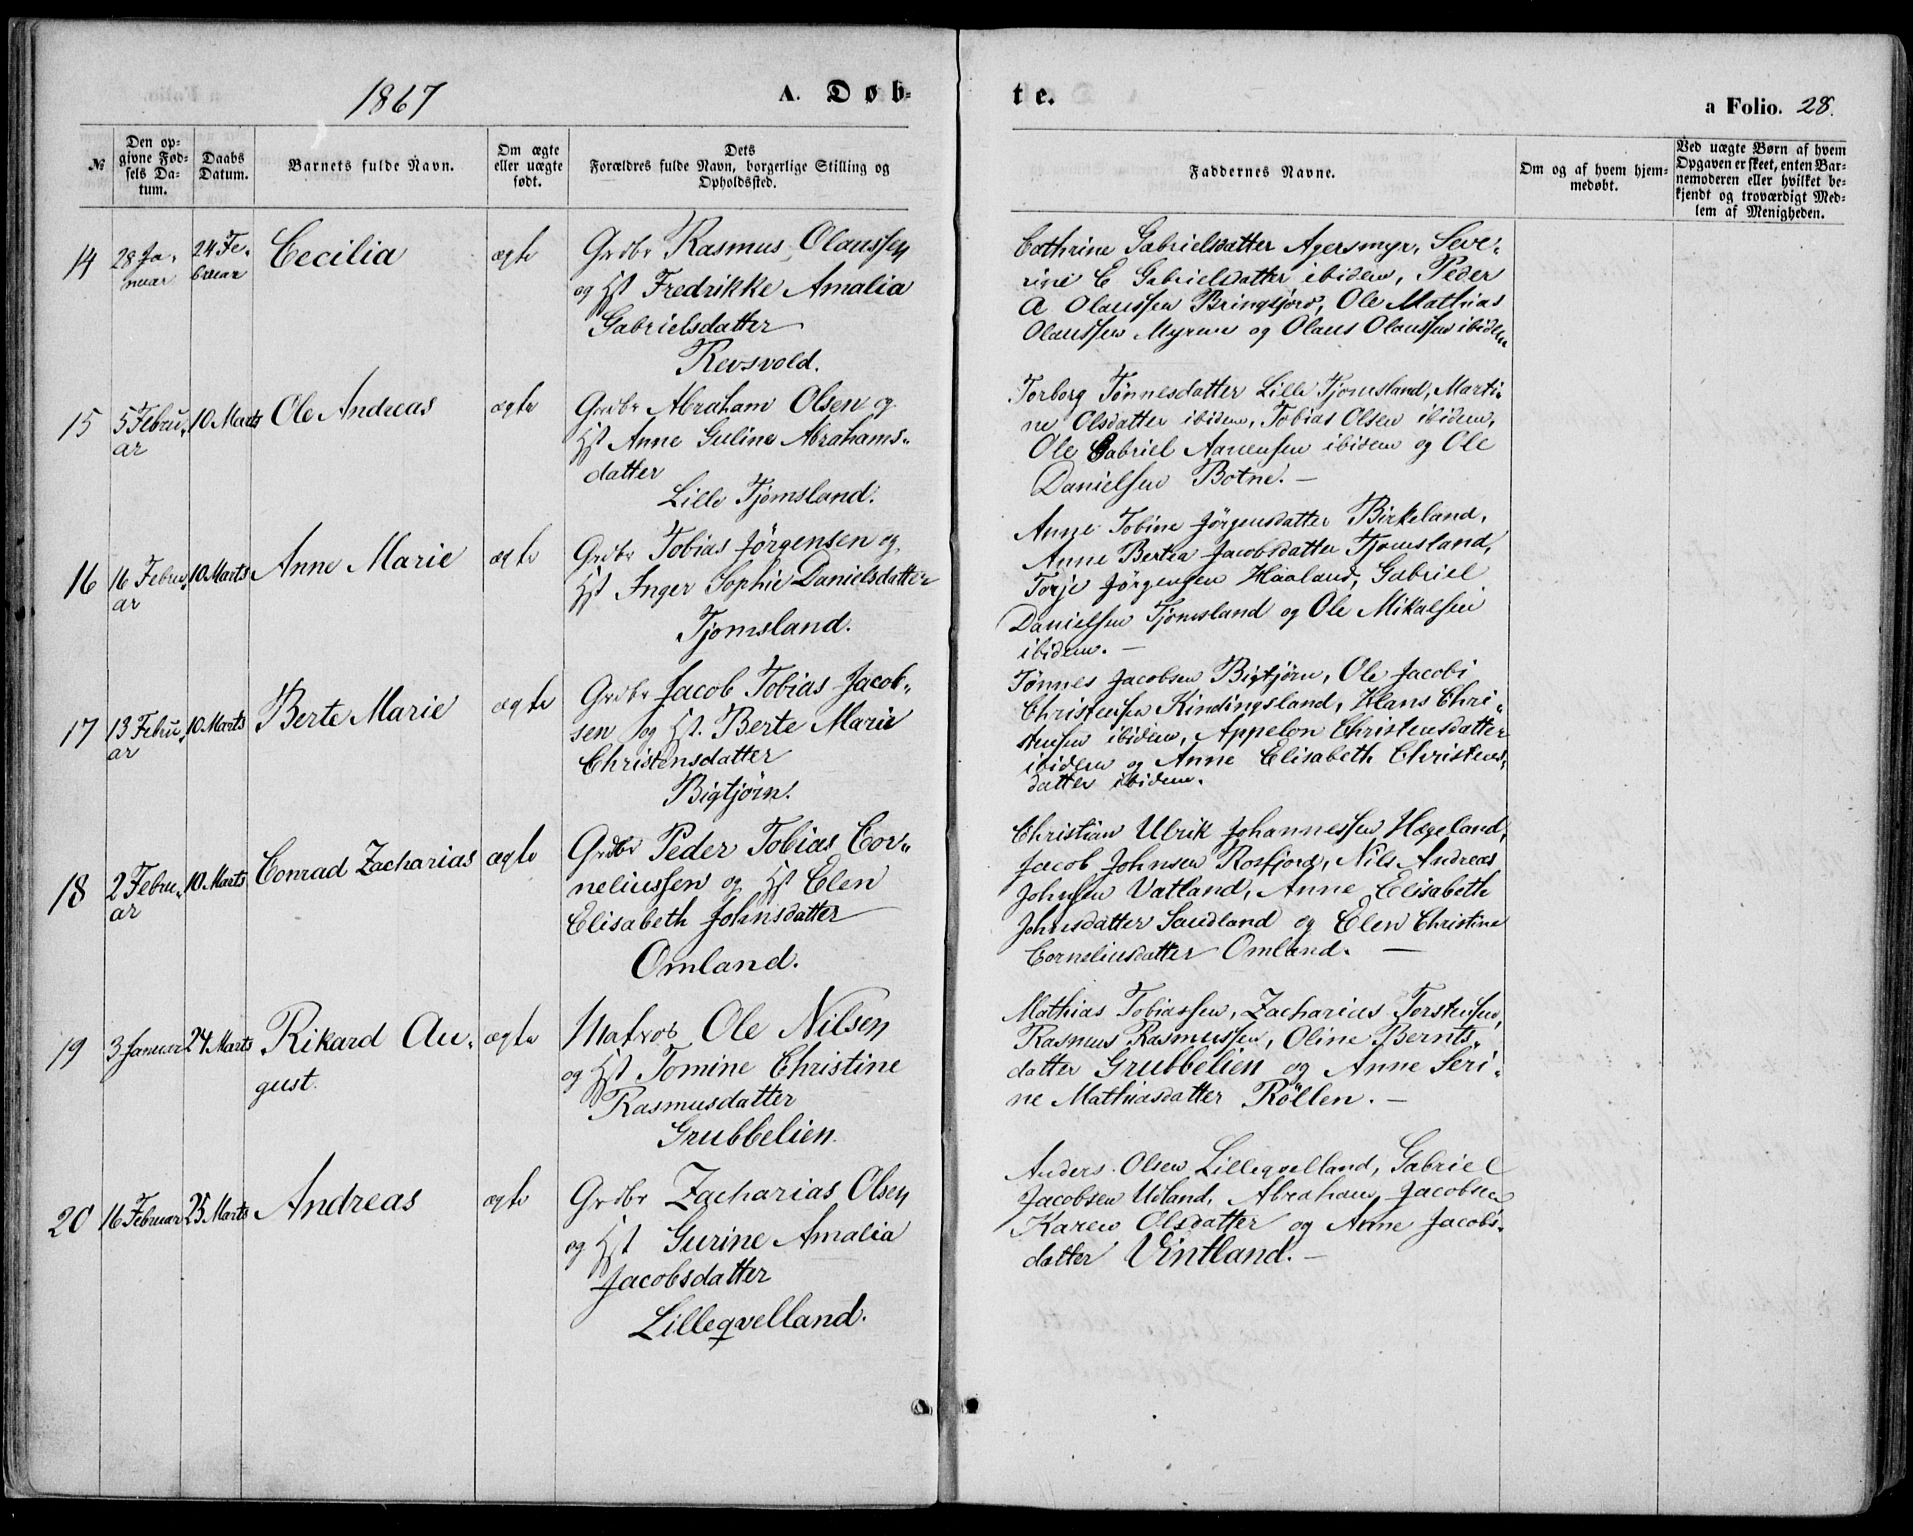 1867
A. Døb-
te.
a Folio. 28.
№
Den op-
givne Fød-
sels Da-
tum.
Daabs
Datum.
Barnets fulde Navn.
Om ægte
eller uægte
født.
Dets
Forældres fulde Navn, borgerlige Stilling og
Opholdssted.
Faddernes Navne.
Om og af hvem hjem-
medøbt.
Ved uægte Børn af hvem
Opgaven er skeet, enten Bar-
nemoderen eller hvilket be-
kjendt og troværdigt Med-
lem af Menigheden.
14
28 Ja-
nuar
24 Fe-
bruar
Cecilia
ægte
Grdbr Rasmus Olaussen
og Hst Fredrikke Amalia
Gabrielsdatter
Revsvold.
Cathrine Gabrielsdatter Agersmyr, Seve-
rine E Gabrielsdatter ibidem, Peder
A Olaussen Bringsjord, Ole Mathias
Olaussen Myrene og Olaus Olaussen ibidem
15
5 Febru-
ar
10 Marts
Ole Andreas
ægte
Grdbr Abraham Olsen og
Hst Anne Guline Abrahams-
datter
Lille Tjomsland.
Torborg Tønnesdatter Lille Tjomsland, Marti-
ne Olsdatter ibidem, Tobias Olsen ibidem,
Ole Gabriel Aanensen ibidem og Ole
Danielsen Botne. -
16
16 Febru-
ar
10 Marts
Anne Marie
ægte
Grdbr Tobias Jörgensen og
Hst Inger Sophie Danielsdatter
Tjomsland.
Anne Tobine Jörgensdatter Birkeland,
Anne Bertea Jacobsdatter Tjomsland,
Torje Jörgensen Haaland, Gabriel
Danielsen Tjomsland og Ole Mikalsen
ibidem. -
17
13 Febru-
ar
10 Marts
Berte Marie
ægte
Grdbr Jacob Tobias Jacob-
sen og Hst. Berte Marie
Christensdatter
Bigtjørn.
Tønnes Jacobsen Bigtjørn, Ole Jacob
Christensen Kindingsland, Hans Chri-
stensen ibidem, Appelon Christensdatter
ibidem og Anne Elisabeth Christens-
datter ibidem.
18
2 Febru-
ar
10 Marts
Conrad Zacharias
ægte
Grdbr Peder Tobias Cor-
neliussen og Hst Elen
Elisabeth Johnsdatter
Omland.
Christian Ulrik Johannessen Hægeland,
Jacob Johnsen Rosfjord, Nils Andreas
Johnsen Vatland, Anne Elisabeth
Johnsdatter Sandland og Elen Christine
Corneliusdatter Omland. -
19
3 Januar
24 Marts
Rikard Au-
gust.
ægte
Matros Ole Nilsen
og Hst Tomine Christine
Rasmusdatter
Grubbelien.
Mathias Tobiassen, Zacharias Torstensen,
Rasmus Rasmussen, Oline Bernts-
datter Grubbelien og Anne Seri-
ne Mathiasdatter Röllen. -
20
16 Februar
25 Marts
Andreas
ægte
Grdbr Zacharias Olsen
og Hst Gurine Amalia
Jacobsdatter
Lilleqvelland.
Anders Olsen Lilleqvelland, Gabriel
Jacobsen Udland, Abraham Jacobsen
Karen Olsdatter og Anne Jacobs-
datter Vintland. -